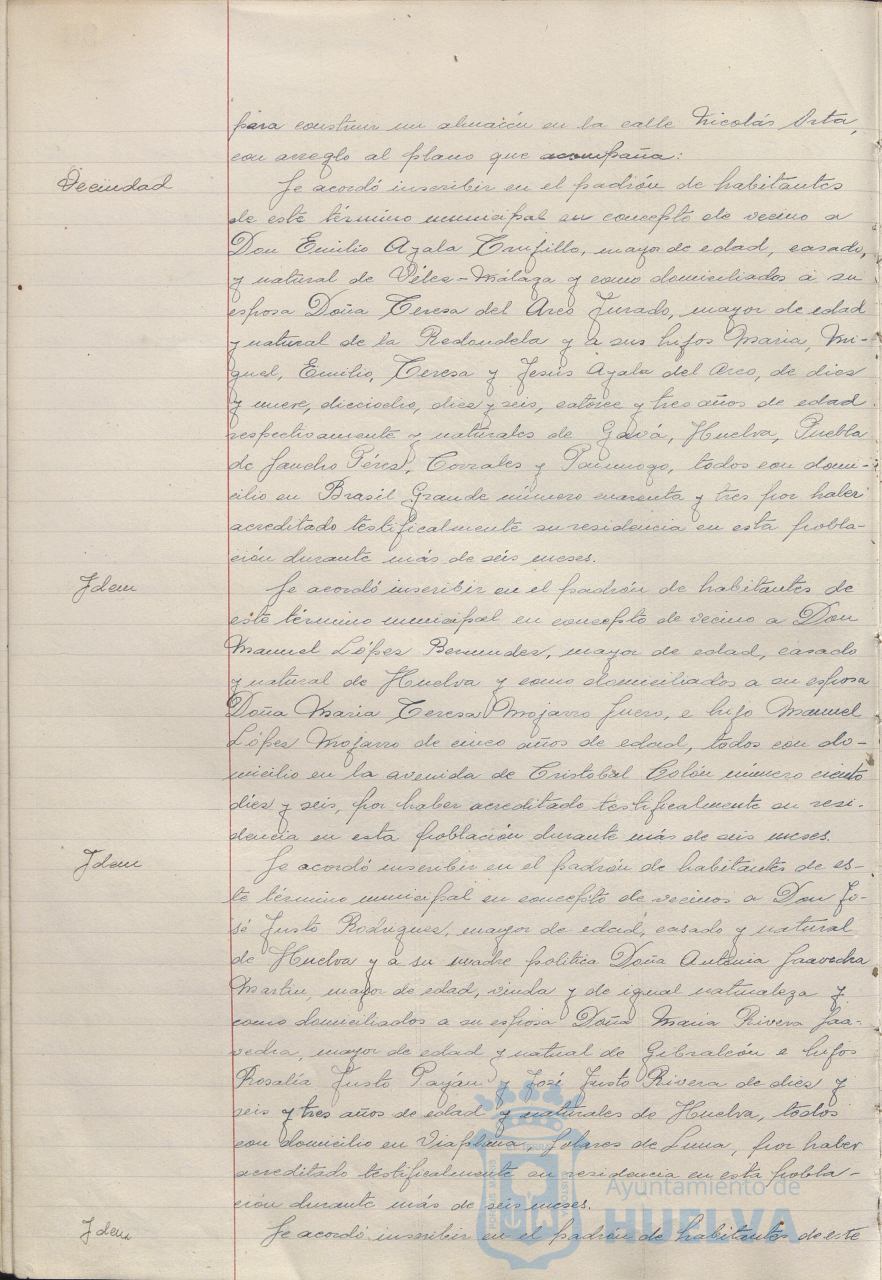 para construir un almacén en la calle Nicolás Orta,
con arreglo al plano que acompaña:
Vecindad
Se acordó inscribir en el padrón de habitantes
de este término municipal en concepto de vecino a
Don Emilio Ayala Trujillo, mayor de edad, casado,
y natural de Vélez-Málaga y como domiciliados a su
esposa Doña Teresa del Arco Jurado, mayor de edad
y natural de la Redondela y a sus hijos Maria, Mi-
guel, Emilio, Teresa y Jesús Ayala del Arco, de diez
y nueve, dieciocho, diez y seis, catorce y tres años de edad
respectivamente y naturales de Gavá, Huelva, Puebla
de Sancho Pérez, Corrales y Paimogo, todos con domi-
cilio en Brasil Grande número cuarenta y tres por haber
acreditado testificalmente su residencia en esta pobla-
ción durante más de seis meses.
Idem
Se acordó inscribir en el padrón de habitantes de
este término municipal en concepto de vecino a Don
Manuel López Bermudez, mayor de edad, casado
y natural de Huelva y como domiciliados a su esposa
Doña Maria Teresa Mojarro Suero, e hijo Manuel
López Mojarro de cinco años de edad, todos con do-
micilio en la avenida de Cristobal Colón número ciento
diez y seis, por haber acreditado testificalmente su resi-
dencia en esta población durante más de seis meses.
Idem
Se acordó inscribir en el padrón de habitantes de es-
te término municipal en concepto de vecinos a Don Jo-
sé Justo Rodriguez, mayor de edad, casado y natural
de Huelva y a su madre politica Doña Antonia Saavedra
Martin, mayor de edad, viuda y de igual naturaleza y
como domiciliados a su esposa Doña Maria Rivera Saa-
vedra, mayor de edad y natural de Gibraleón e hijos
Rosalía Justo Payán y José Justo Rivera de diez y
seis y tres años de edad y naturales de Huelva, todos
con domicilio en Viaplana, Solares de Luna, por haber
acreditado testificalmente su residencia en esta pobla-
ción durante más de seis meses.
Idem
Se acordó inscribir en el padrón de habitantes de este
Ayuntamiento de
HUELVA